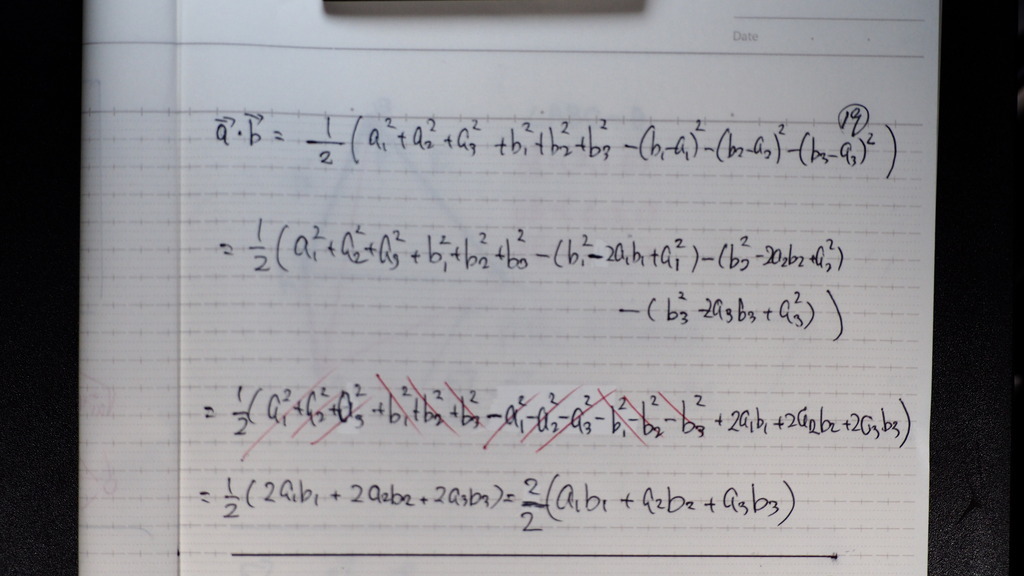 Date
19
a⃗·b⃗ = 1/2 (a₁² + a₂² + a₃² + b₁² + b₂² + b₃² - (b₁-a₁)² - (b₂-a₂)² - (b₃-a₃)²)
= 1/2 (a₁² + a₂² + a₃² + b₁² + b₂² + b₃² - (b₁² - 2a₁b₁ + a₁²) - (b₂² - 2a₂b₂ + a₂²)
- (b₃² - 2a₃b₃ + a₃²))
= 1/2 (a₁² + a₂² + a₃² + b₁² + b₂² + b₃² - a₁² - a₂² - a₃² - b₁² - b₂² - b₃² + 2a₁b₁ + 2a₂b₂ + 2a₃b₃)
= 1/2 (2a₁b₁ + 2a₂b₂ + 2a₃b₃) = 2/2 (a₁b₁ + a₂b₂ + a₃b₃)